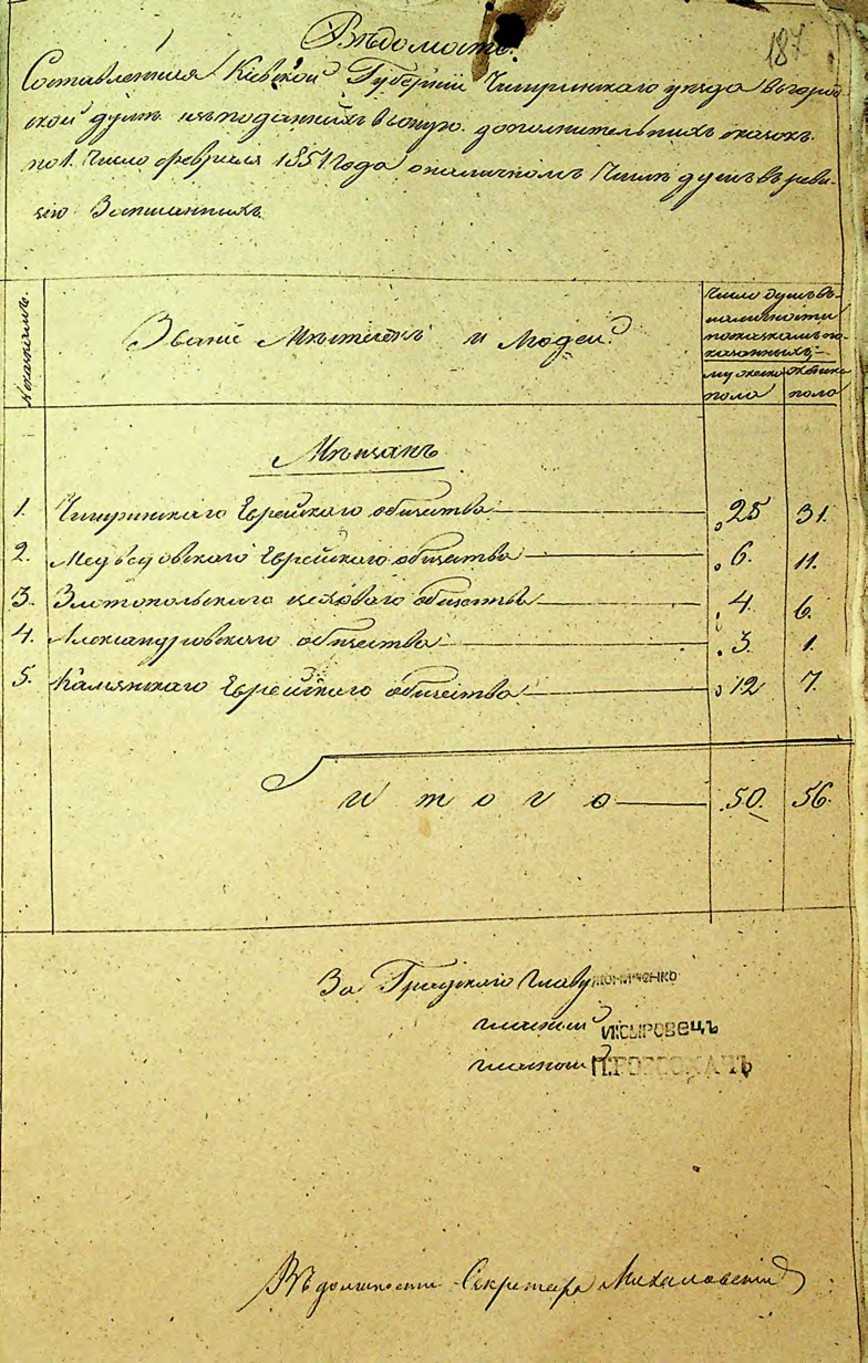 187
Вѣдомость.
Составленная Кіевской Губерніи Чигиринскаго уѣзда въ город
ской думѣ изъ поданныхъ в оную дополнительныхъ сказокъ
по 1. Число февраля 1851 года о наличномъ Числѣ душъ въ реви-
зію Записанныхъ
№ сказкамъ.
Званіе Мѣстечекъ и людей.
Число душъ въ
наличности
по сказкамъ по-
казанныхъ
мужеска женска
пола пола
Мѣщанъ
1. Чигиринскаго Еврейскаго общества 25 31.
2. Медведовскаго Еврейскаго общества 6. 11.
3. Златопольскаго цеховаго общества 4 6.
4. Александровскаго общества 3 1.
5. Камянскаго Еврейскаго общества 12 7.
Итого 50. 56.
За Градскаго Главу
гласный И.СЫРОВЕЦЪ
гласный
Въ должности Секретара Михаловскій